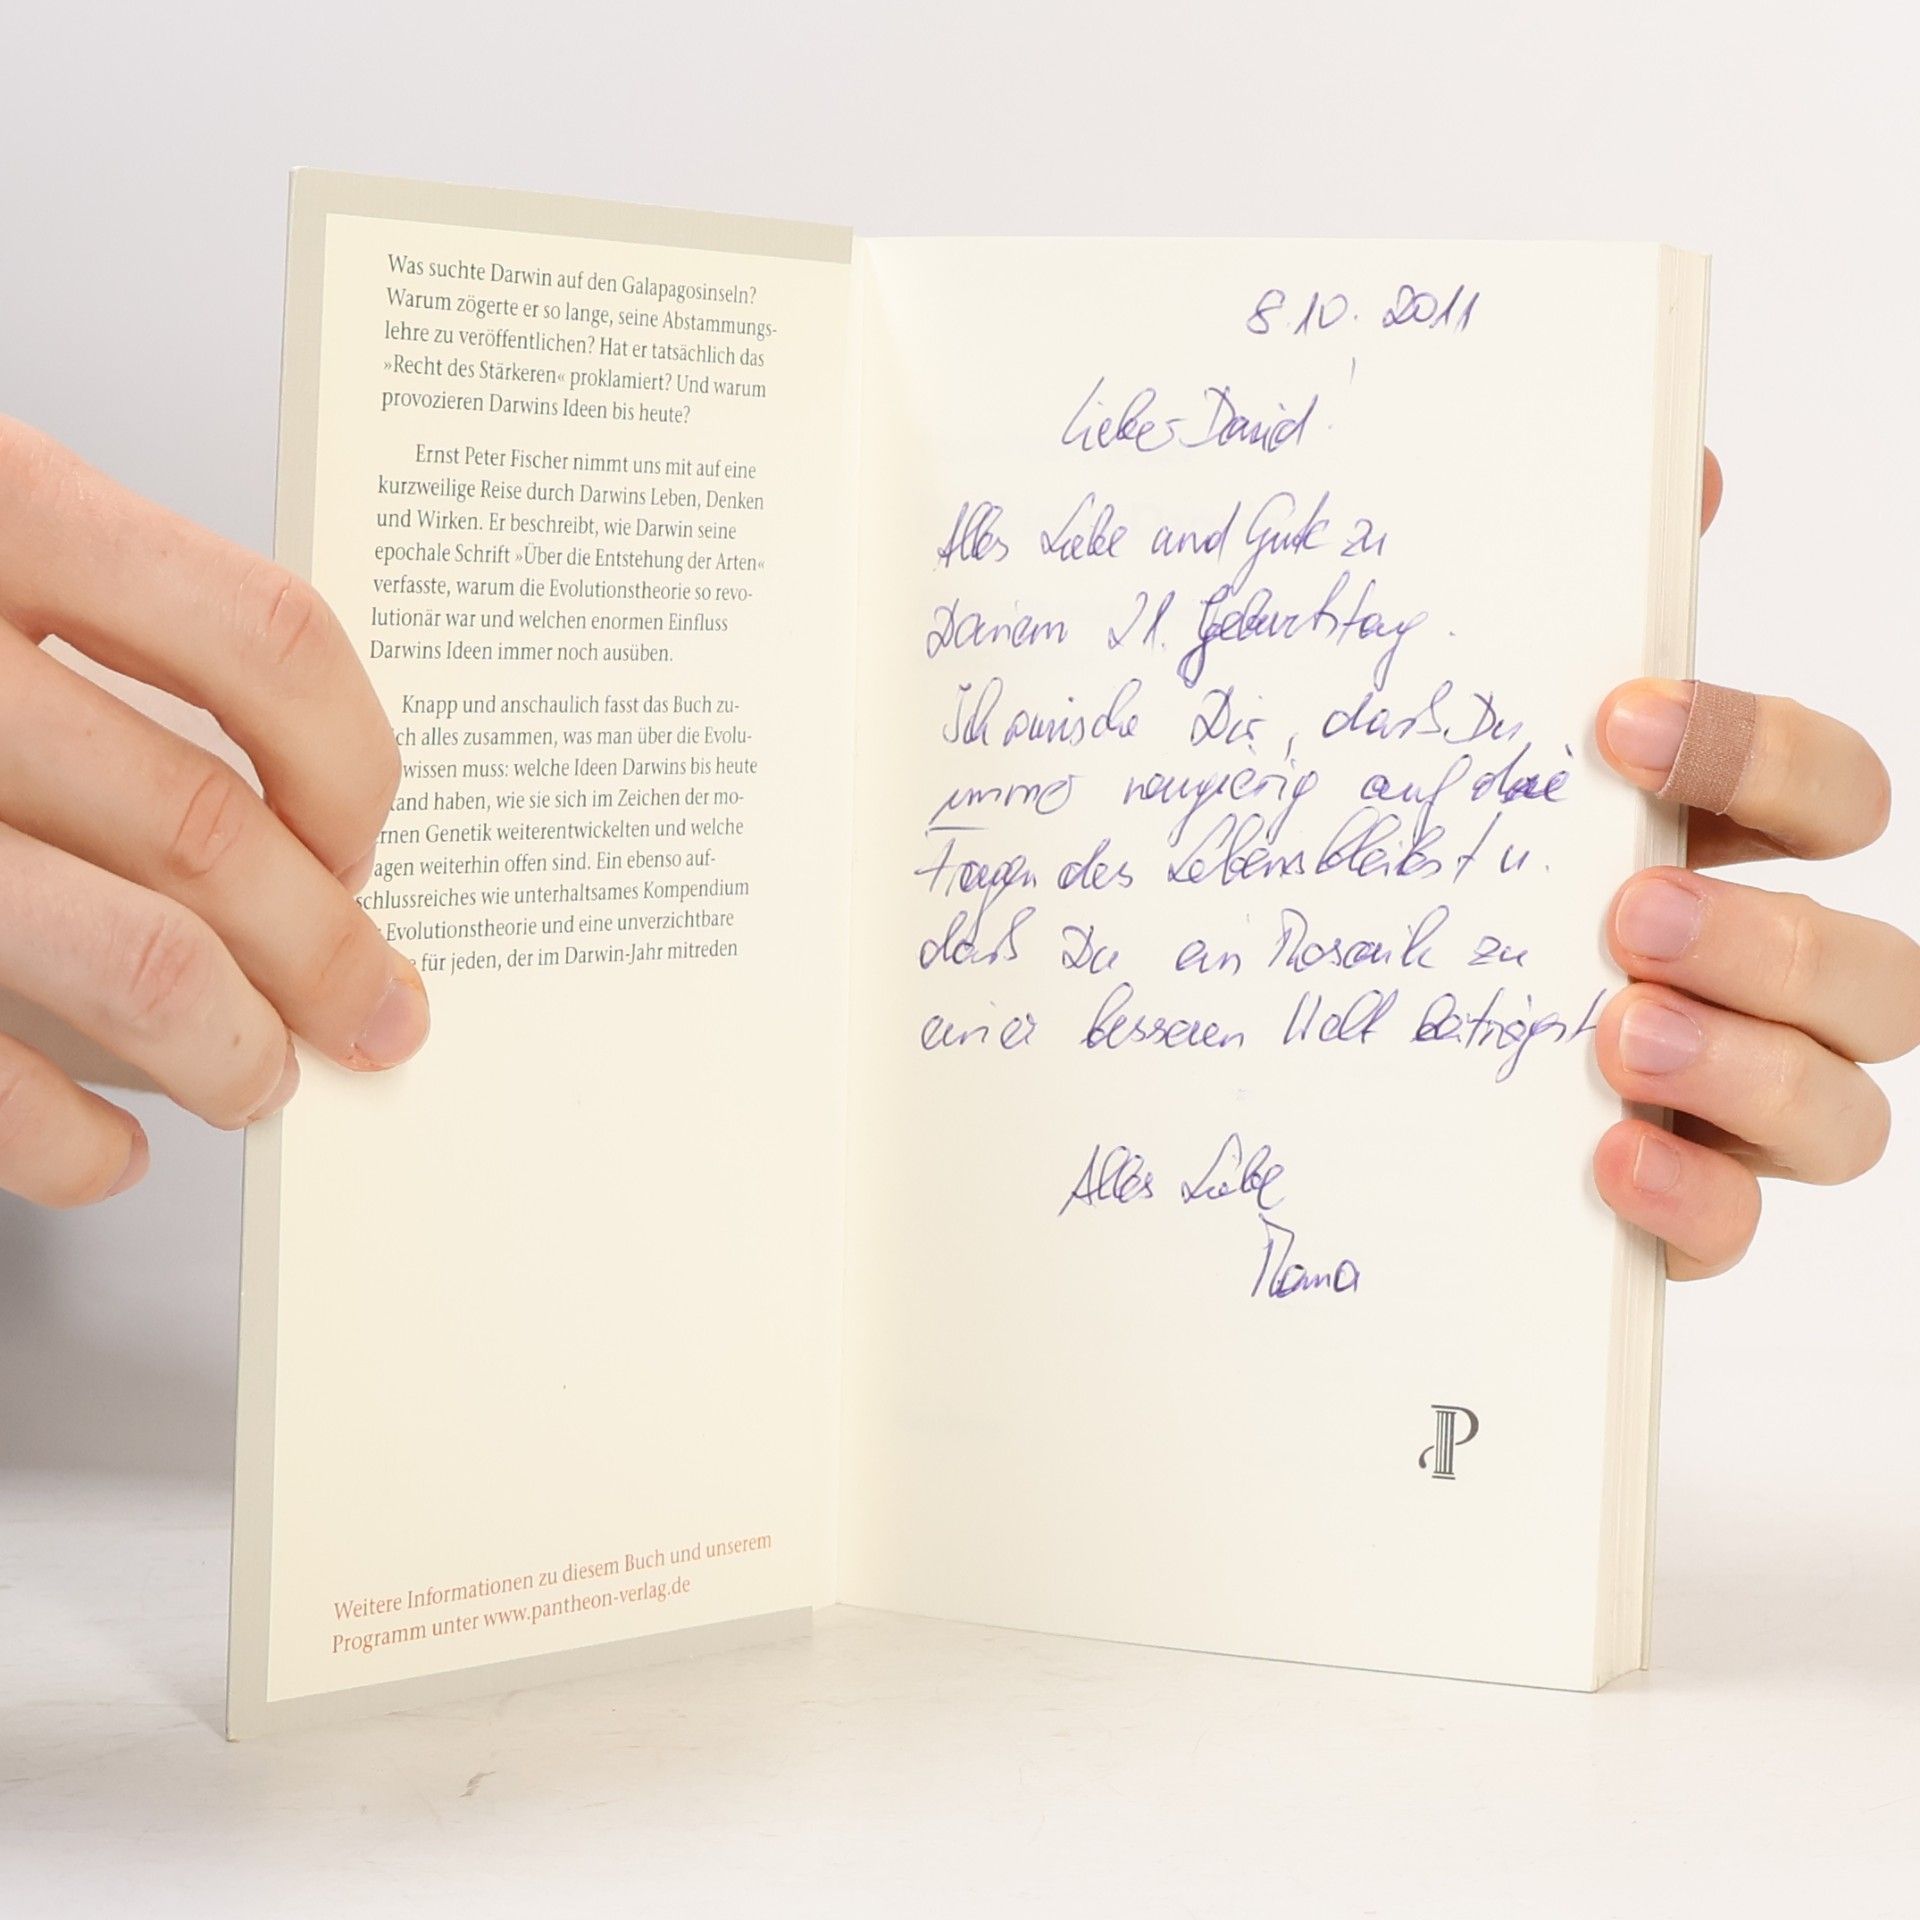 Was suchte Darwin auf den Galapagosinseln?
Warum zögerte er so lange, seine Abstammungs-
lehre zu veröffentlichen? Hat er tatsächlich das
»Recht des Stärkeren« proklamiert? Und warum
provozieren Darwins Ideen bis heute?
Ernst Peter Fischer nimmt uns mit auf eine
kurzweilige Reise durch Darwins Leben, Denken
und Wirken. Er beschreibt, wie Darwin seine
epochale Schrift »Über die Entstehung der Arten«
verfasste, warum die Evolutionstheorie so revo-
lutionär war und welchen enormen Einfluss
Darwins Ideen immer noch ausüben.
Knapp und anschaulich fasst das Buch zu-
ch alles zusammen, was man über die Evolu-
wissen muss: welche Ideen Darwins bis heute
tand haben, wie sie sich im Zeichen der mo-
rnen Genetik weiterentwickelten und welche
agen weiterhin offen sind. Ein ebenso auf-
schlussreiches wie unterhaltsames Kompendium
Evolutionstheorie und eine unverzichtbare
für jeden, der im Darwin-Jahr mitreden
Weitere Informationen zu diesem Buch und unserem
Programm unter www.pantheon-verlag.de
8.10.2011
Lieber David!
Alles Liebe und Gute zu
Deinem 21. Geburtstag.
Ich wünsche Dir, daß Du
immer neugierig auf die
Fragen des Lebens bleibst u.
daß Du ein Mosaik zu
einer besseren Welt beiträgst
Alles Liebe
Mama
P